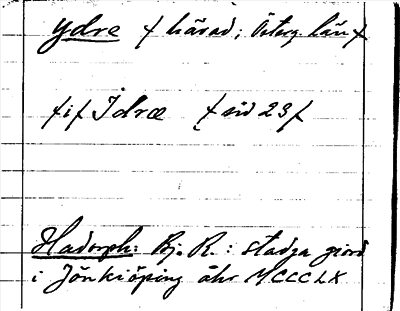 Ydre / härad; Österg. län /
/ i / Idræ / sid 23 /
Hadorph: Bj. R.: stadga giord
i Jönkiöping åhr MCCCLX